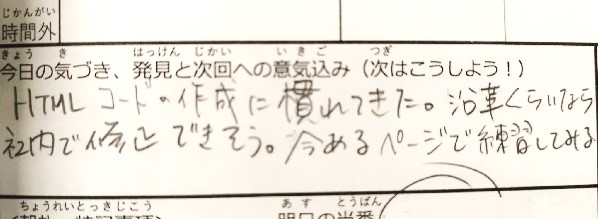 じかんがい
時間外
きょう き はっけん じかい いきご つぎ
今日の気づき、発見と次回への意気込み（次はこうしよう！）
HTMLコードの作成に慣れてきた。沿革くらいなら
社内で修正できそう。今あるページで練習してみる
ちょうれいとっきじこう あす とうばん
明日の当番